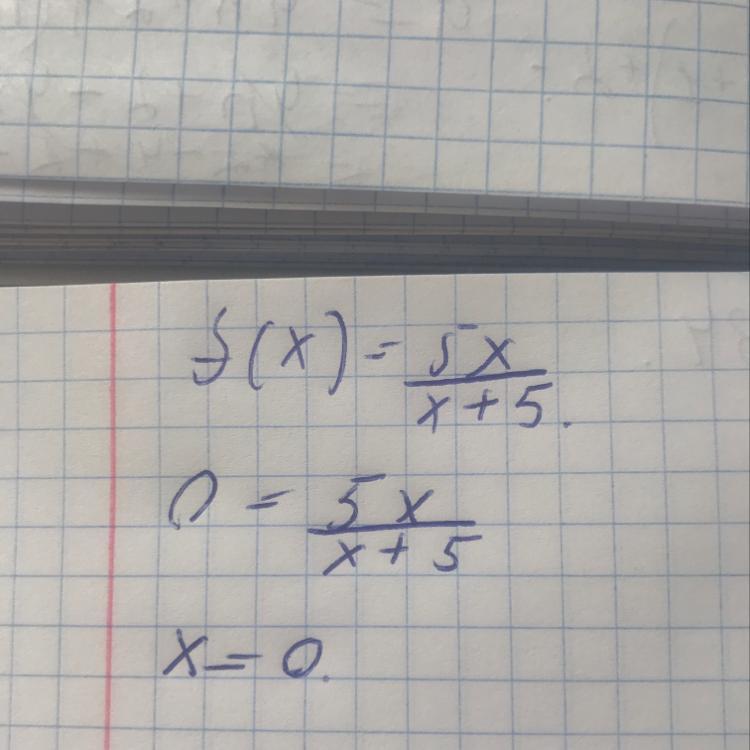 f(x) = 5x / x + 5.
0 = 5x / x + 5
x = 0.